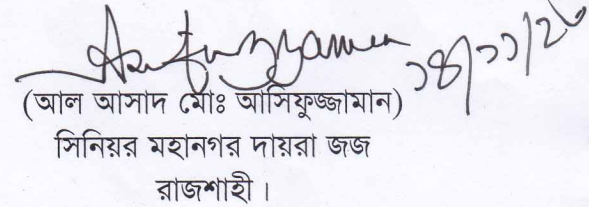 ১৪/১১/২৫
(আল আসাদ মোঃ আসিফুজ্জামান)
সিনিয়র মহানগর দায়রা জজ
রাজশাহী।